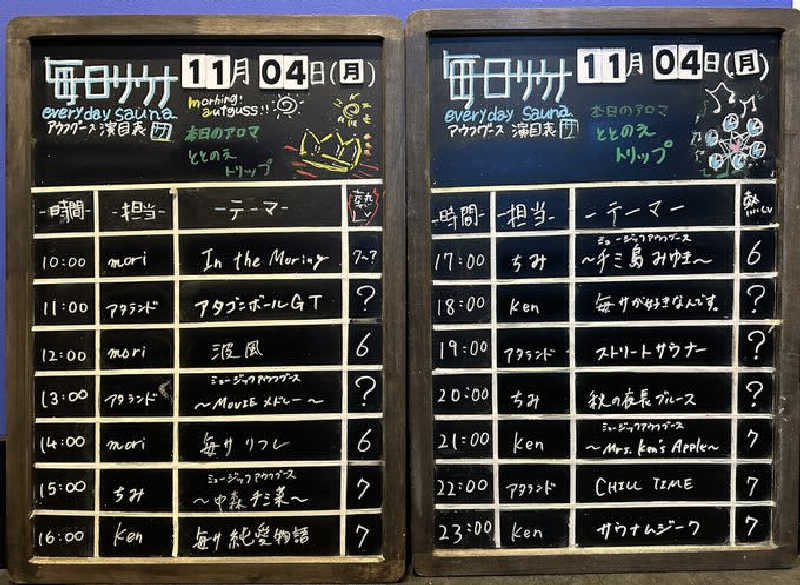 毎日サウナ 11月04日(月)
everyday sauna
morning autguss!!
アウフグース 演目表 サ
本日のアロマ
ととのえ
トリップ
-時間- -担当- -テーマ- 熱い
10:00 mori In the Moring 7~?
11:00 アタランド アタゴンボールGT ?
12:00 mori 波風 6
13:00 アタランド ミュージックアウフグース ~MOVIEメドレー~ ?
14:00 mori 毎サリフレ 6
15:00 ちみ ミュージックアウフグース ~中森チミ菜~ 7
16:00 Ken 毎サ純愛物語 7
毎日サウナ 11月04日(月)
everyday sauna
アウフグース 演目表 サ
本日のアロマ
ととのえ
トリップ
-時間- -担当- -テーマ-
17:00 ちみ ミュージックアウフグース ~チミ島みゆき~ 6
18:00 Ken 毎サが好きなんです。 ?
19:00 アタランド ストリートサウナー ?
20:00 ちみ 秋の夜長ブルース ?
21:00 Ken ミュージックアウフグース ~Mrs. Ken's Apple~ 7
22:00 アタランド CHILL TIME 7
23:00 Ken サウナムジーク 7